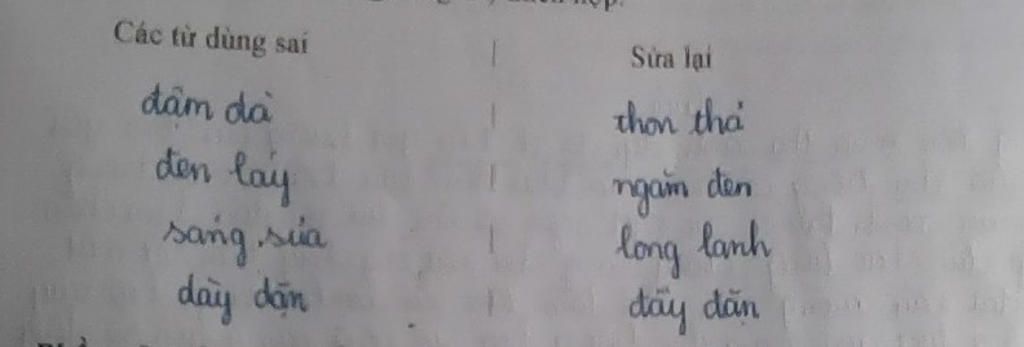 Các từ dùng sai | Sửa lại
đậm đà | thon thả
đen láy | ngăm đen
sáng sủa | long lanh
dày dặn | đầy đặn